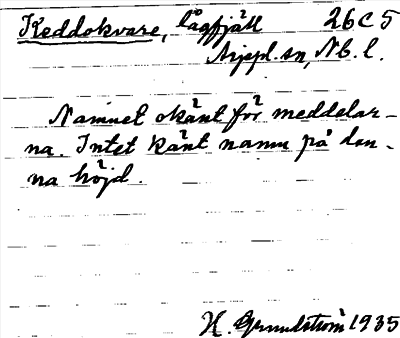 Keddokvare, lågfjäll 26C5
Arjepl. sn, N.b.l.
Namnet okänt för meddelar-
na. Intet känt namn på den-
na höjd.
H. Grundström 1935